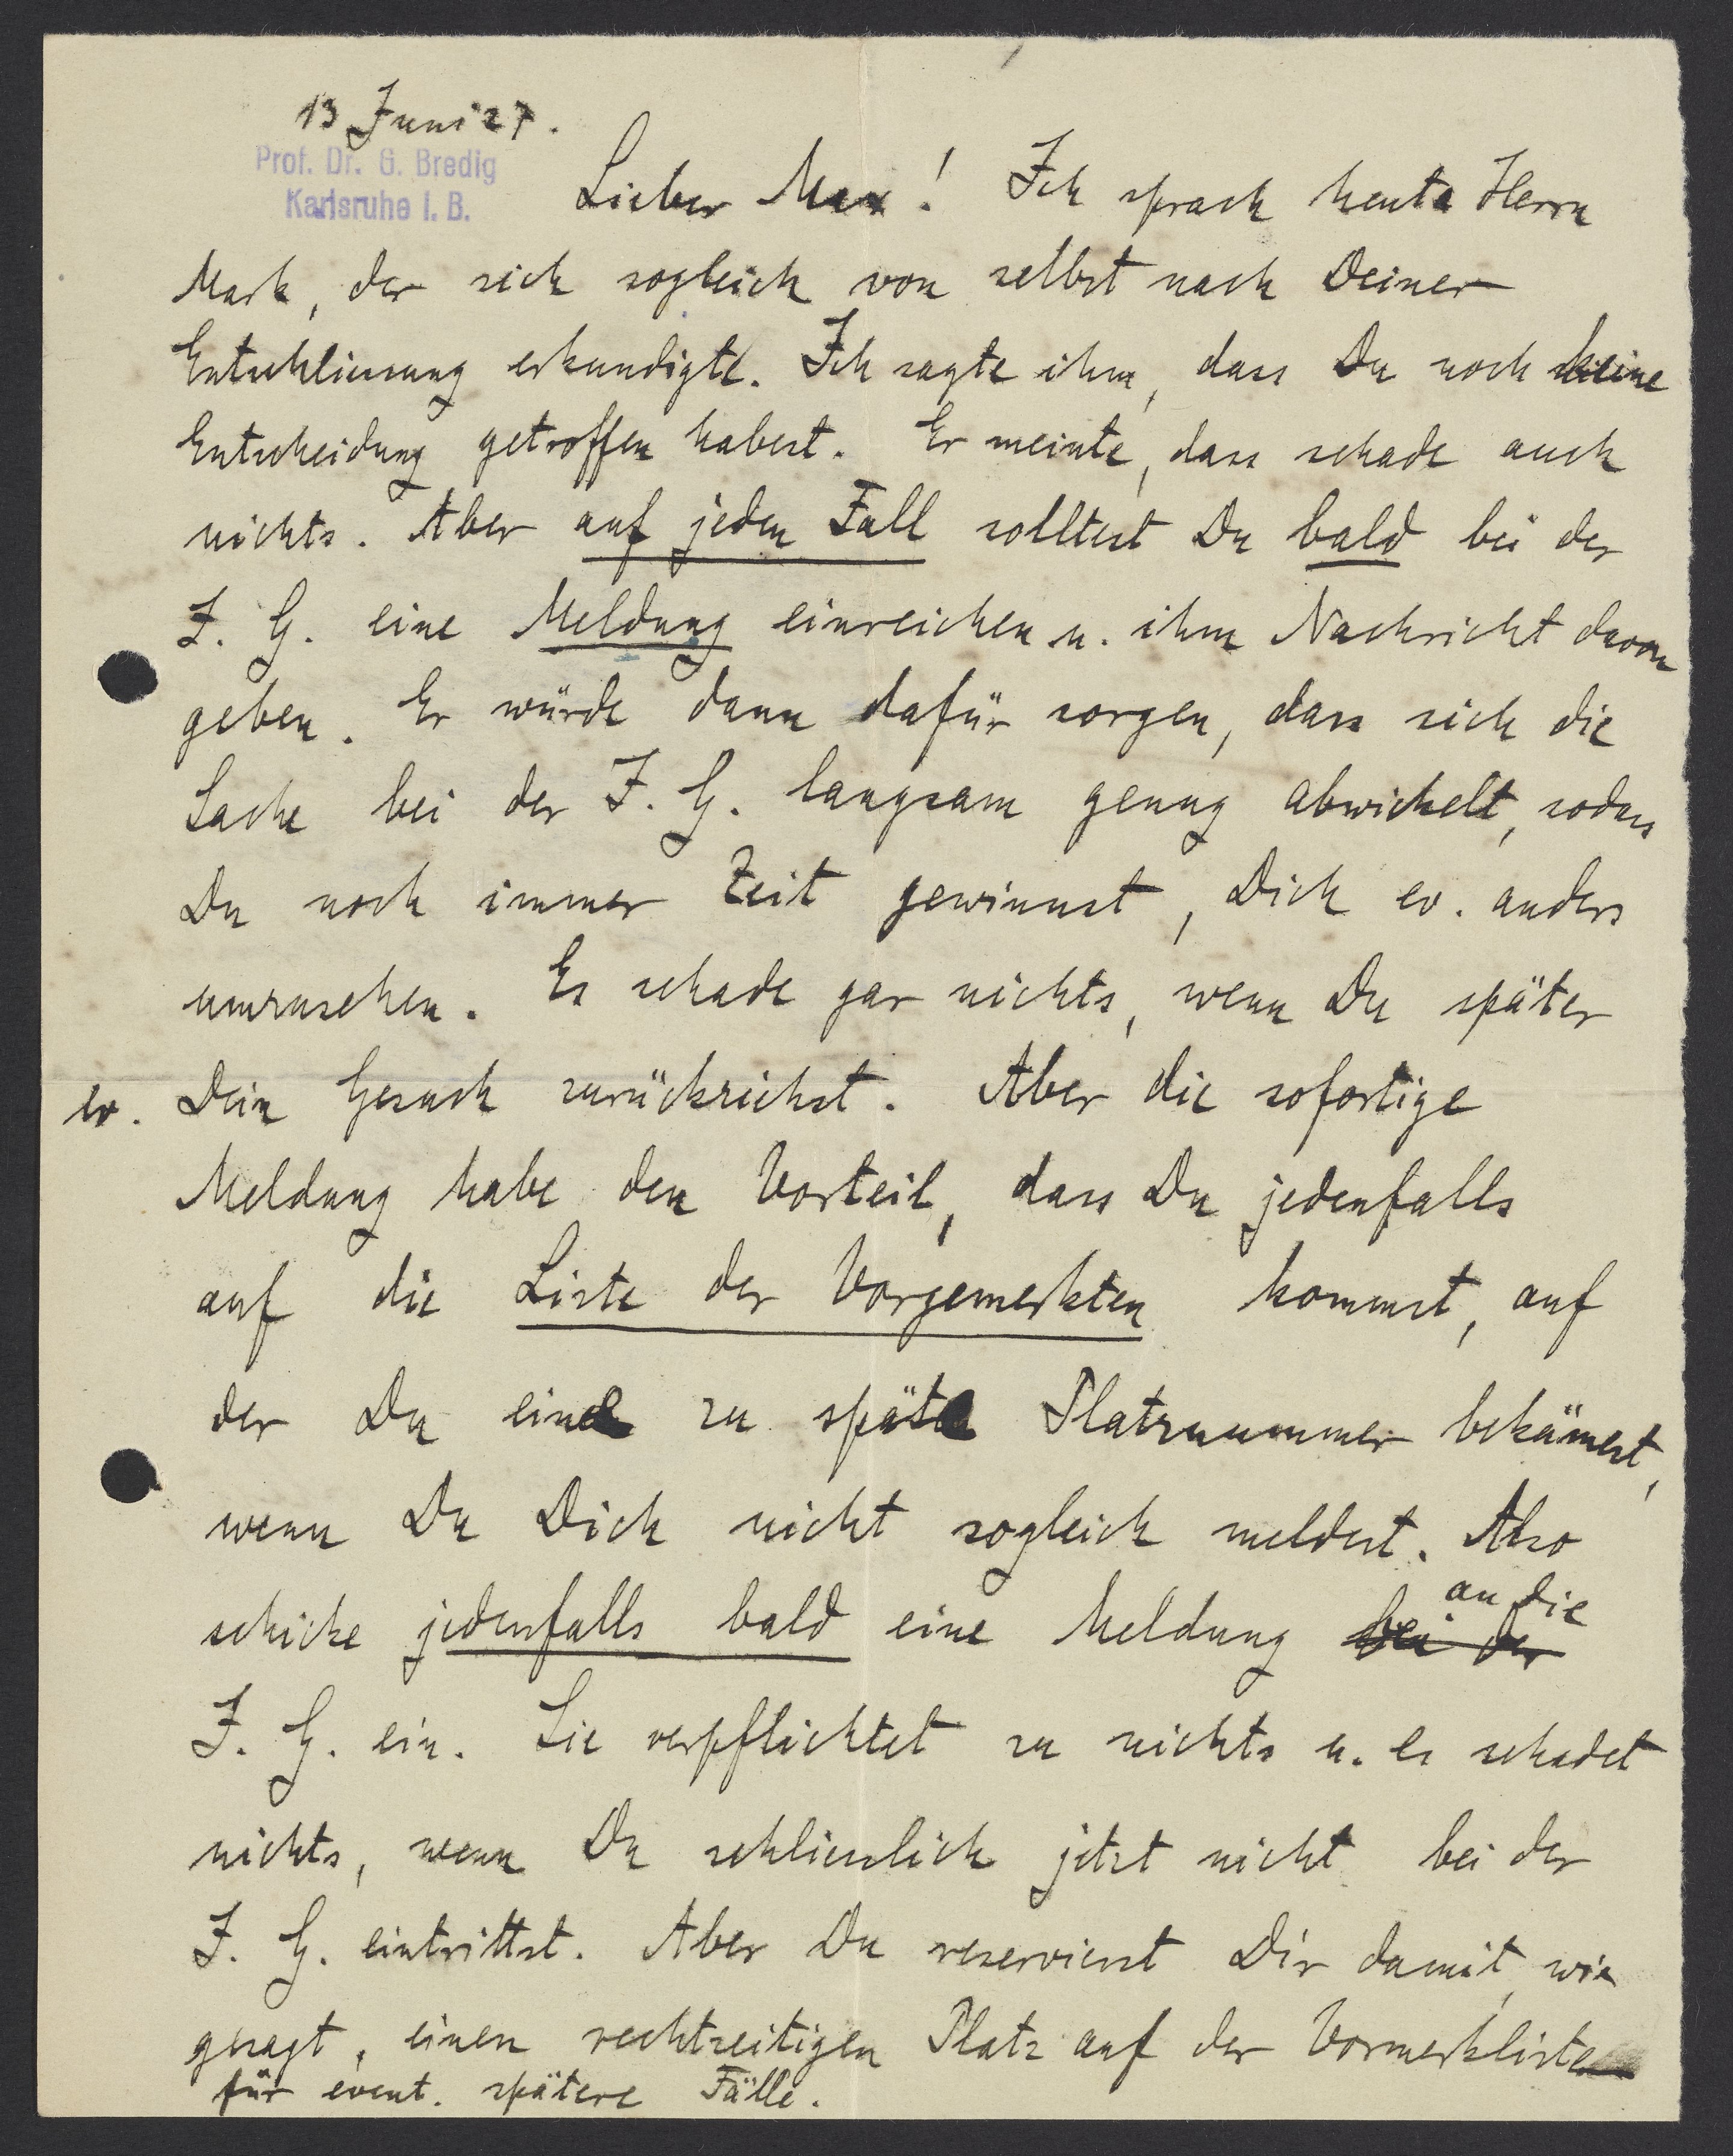 13 Juni 27.
Prof. Dr. G. Bredig
Karlsruhe i. B.
Lieber Max! Ich sprach heute Herrn
Mark, der sich sogleich von selbst nach Deiner
Entschliessung erkundigte. Ich sagte ihm, dass Du noch keine
Entscheidung getroffen habest. Er meinte, dass schade auch
nichts. Aber auf jeden Fall solltest Du bald bei der
I. G. eine Meldung einreichen u. ihm Nachricht davon
geben. Er würde dann dafür sorgen, dass sich die
Sache bei der I. G. langsam genug abwickelt, sodass
Du noch immer Zeit gewinnst, Dich ev. anders
umzusehen. Es schade gar nichts, wenn Du später
ev. Dein Gesuch zurückziehst. Aber die sofortige
Meldung habe den Vorteil, dass Du jedenfalls
auf die Liste der Vorgemerkten kommst, auf
der Du eine zu späte Platznummer bekämest,
wenn Du Dich nicht sogleich meldest. Also
an die
schicke jedenfalls bald eine Meldung bei der
I. G. ein. Sie verpflichtet zu nichts u. es schadet
nichts, wenn Du schliesslich jetzt nicht bei der
I. G. eintrittst. Aber Du reservierst Dir damit, wie
gesagt, einen rechtzeitigen Platz auf der Vormerkliste
für event. spätere Fälle.